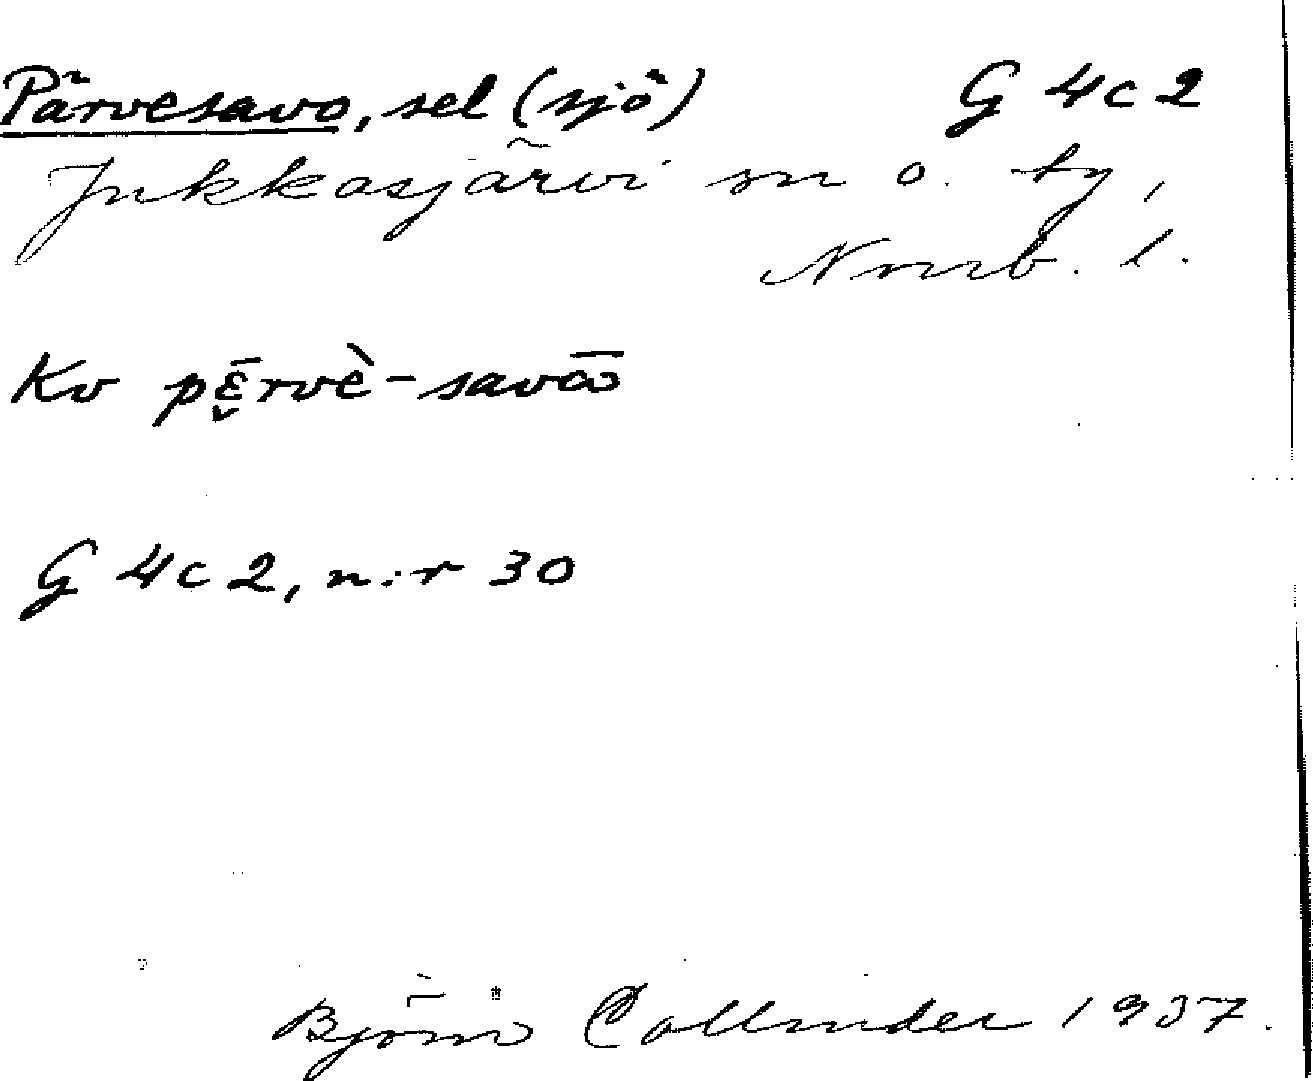 Pärvesavo, sel (sjö) G 4c2
Jukkasjärvi sn o. tg,
Norrb. l.
Kv pε̬̄rvè-savω̄
G 4c2, n:r 30
Björn Collinder 1937.